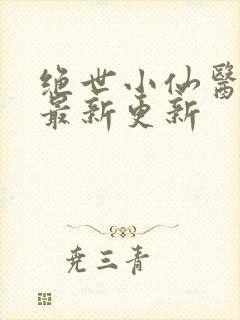 绝世小仙醫
最新更新
尧三青